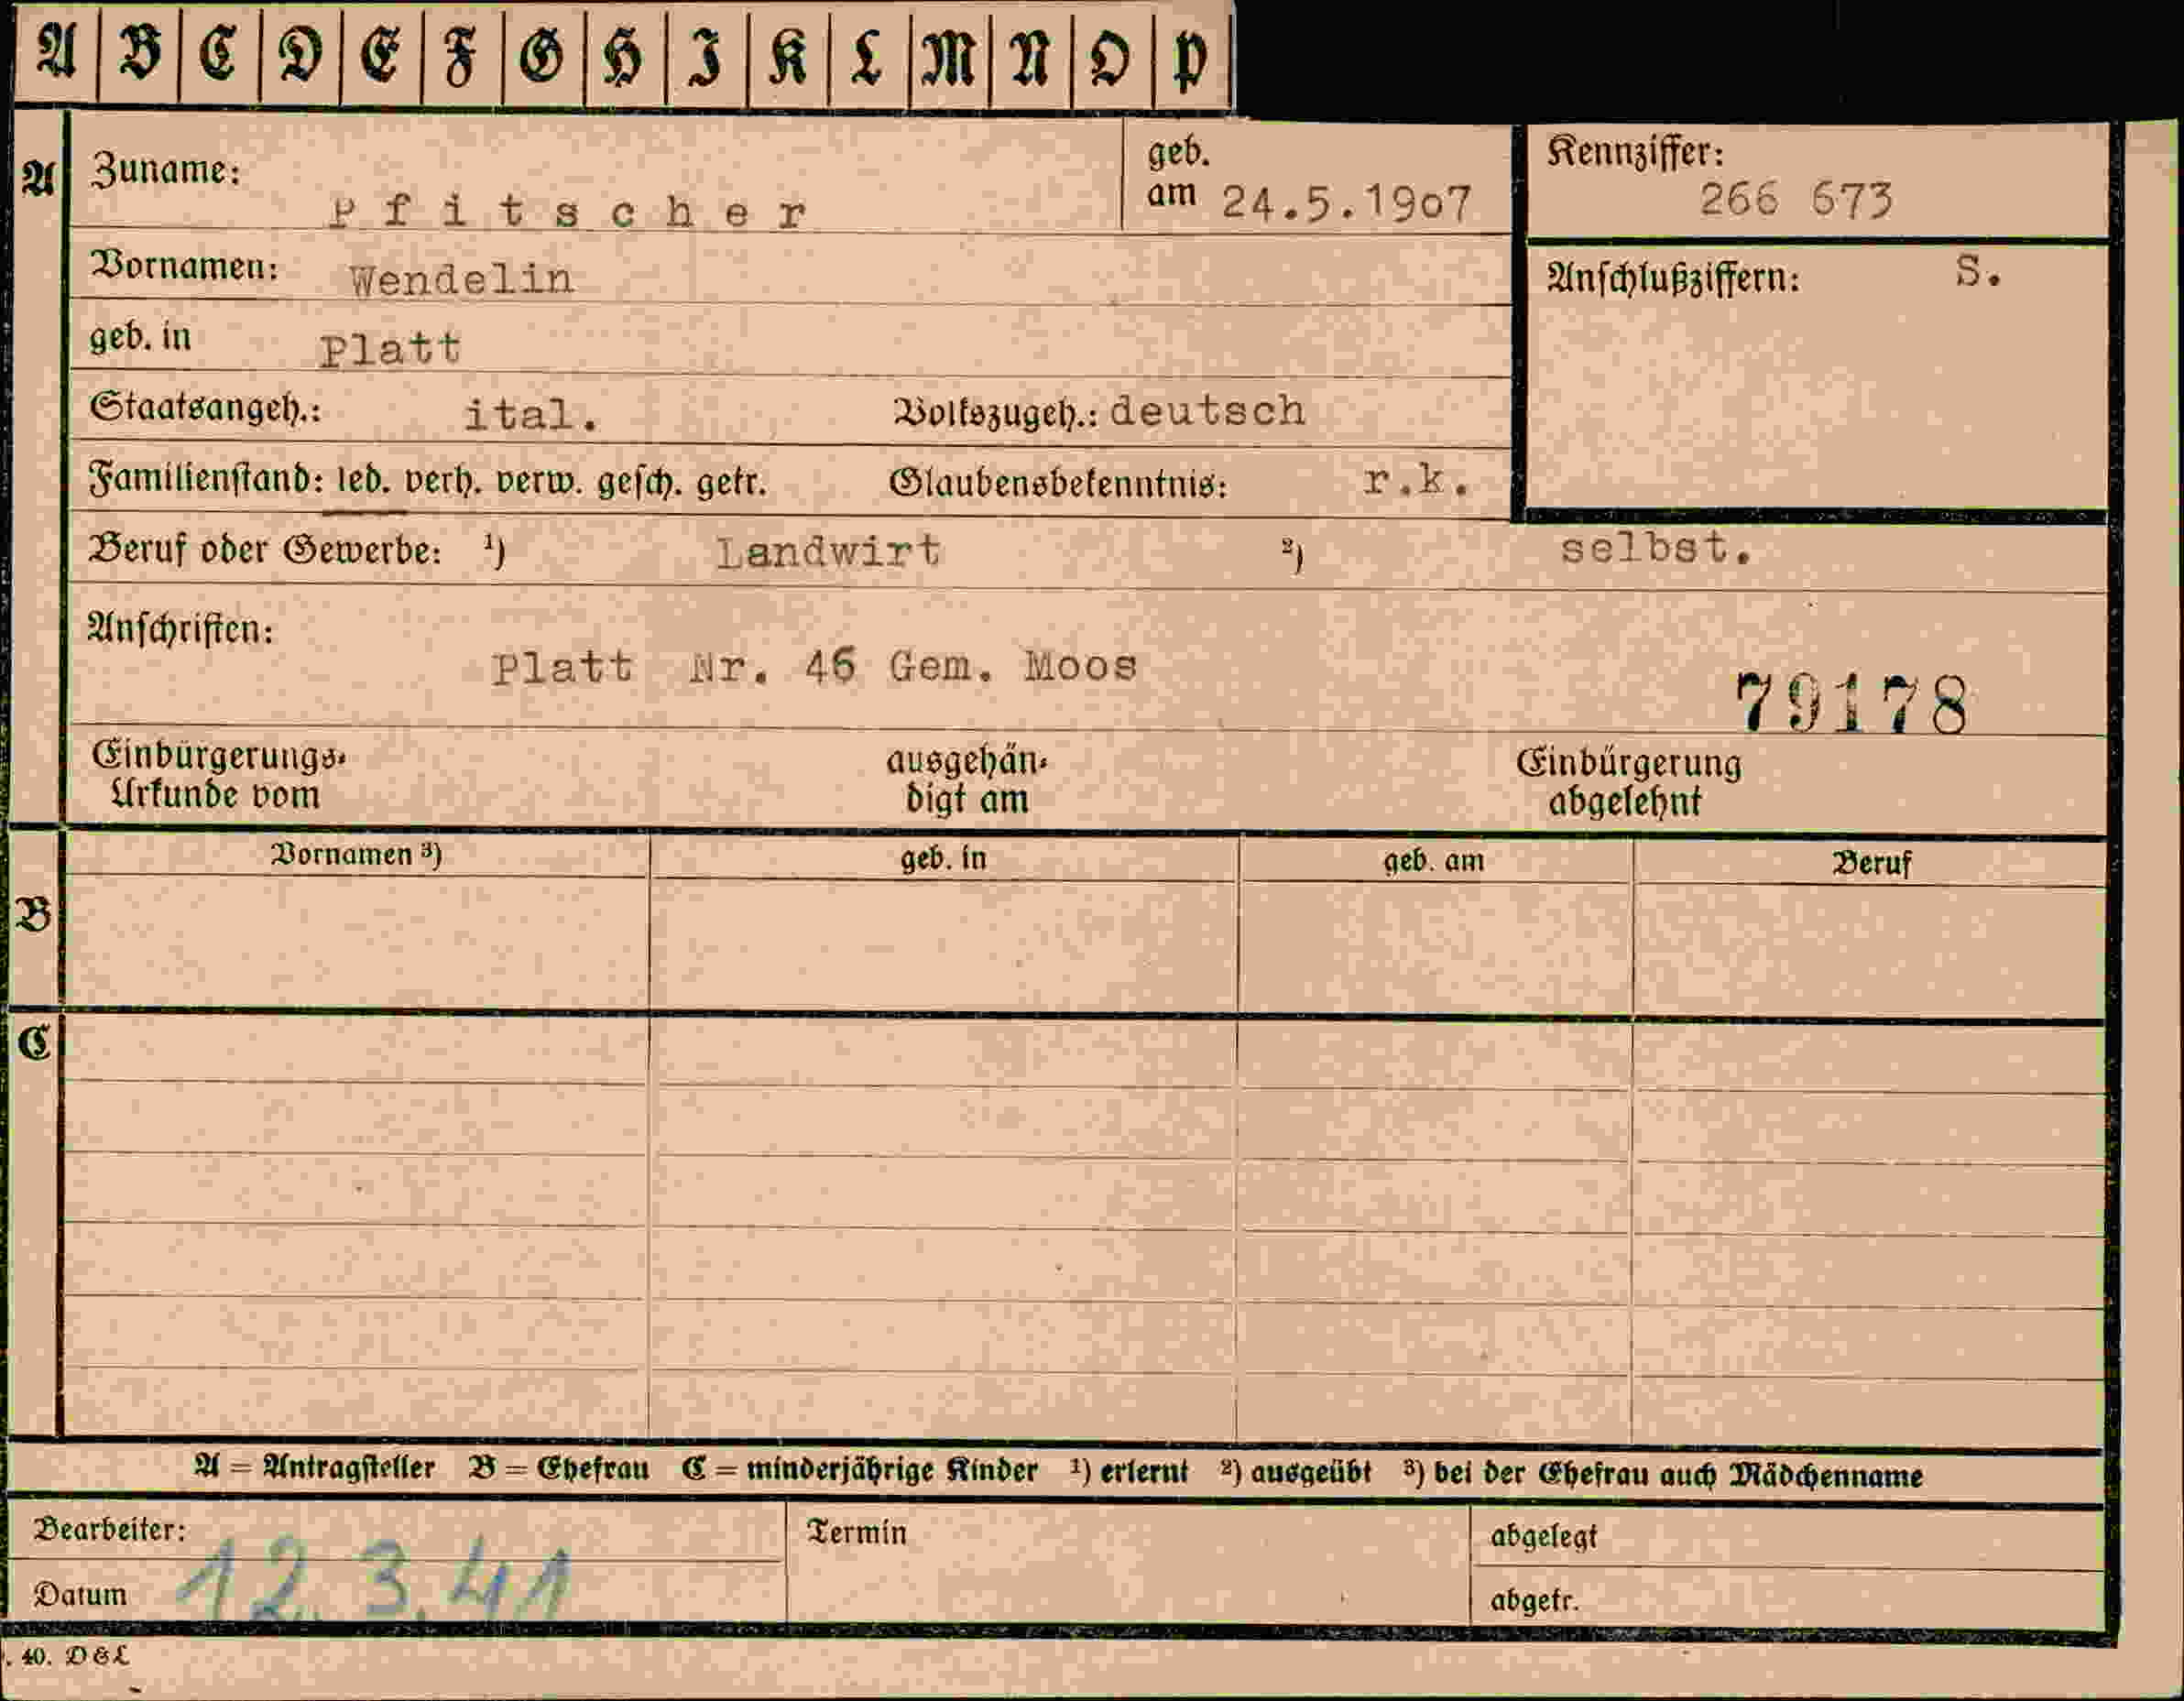 A B C D E F G H I K L M N O P
A Zuname: Pfitscher geb. am 24.5.1907 Kennziffer: 266 673
Vornamen: Wendelin Anschlußziffern: S.
geb. in Platt
Staatsangeh.: ital. Volkszugeh.: deutsch
Familienstand: led. verh. verw. gesch. getr. Glaubensbekenntnis: r.k.
Beruf oder Gewerbe: ¹) Landwirt ²) selbst.
Anschriften:
Platt Nr. 46 Gem. Moos
79178
Einbürgerungs- ausgehän- Einbürgerung
Urkunde vom digt am abgelehnt
Vornamen ³) geb. in geb. am Beruf
B
C
A = Antragsteller B = Ehefrau C = minderjährige Kinder ¹) erlernt ²) ausgeübt ³) bei der Ehefrau auch Mädchenname
Bearbeiter: Termin abgelegt
Datum 12.3.41 abgetr.
. 40. D&L